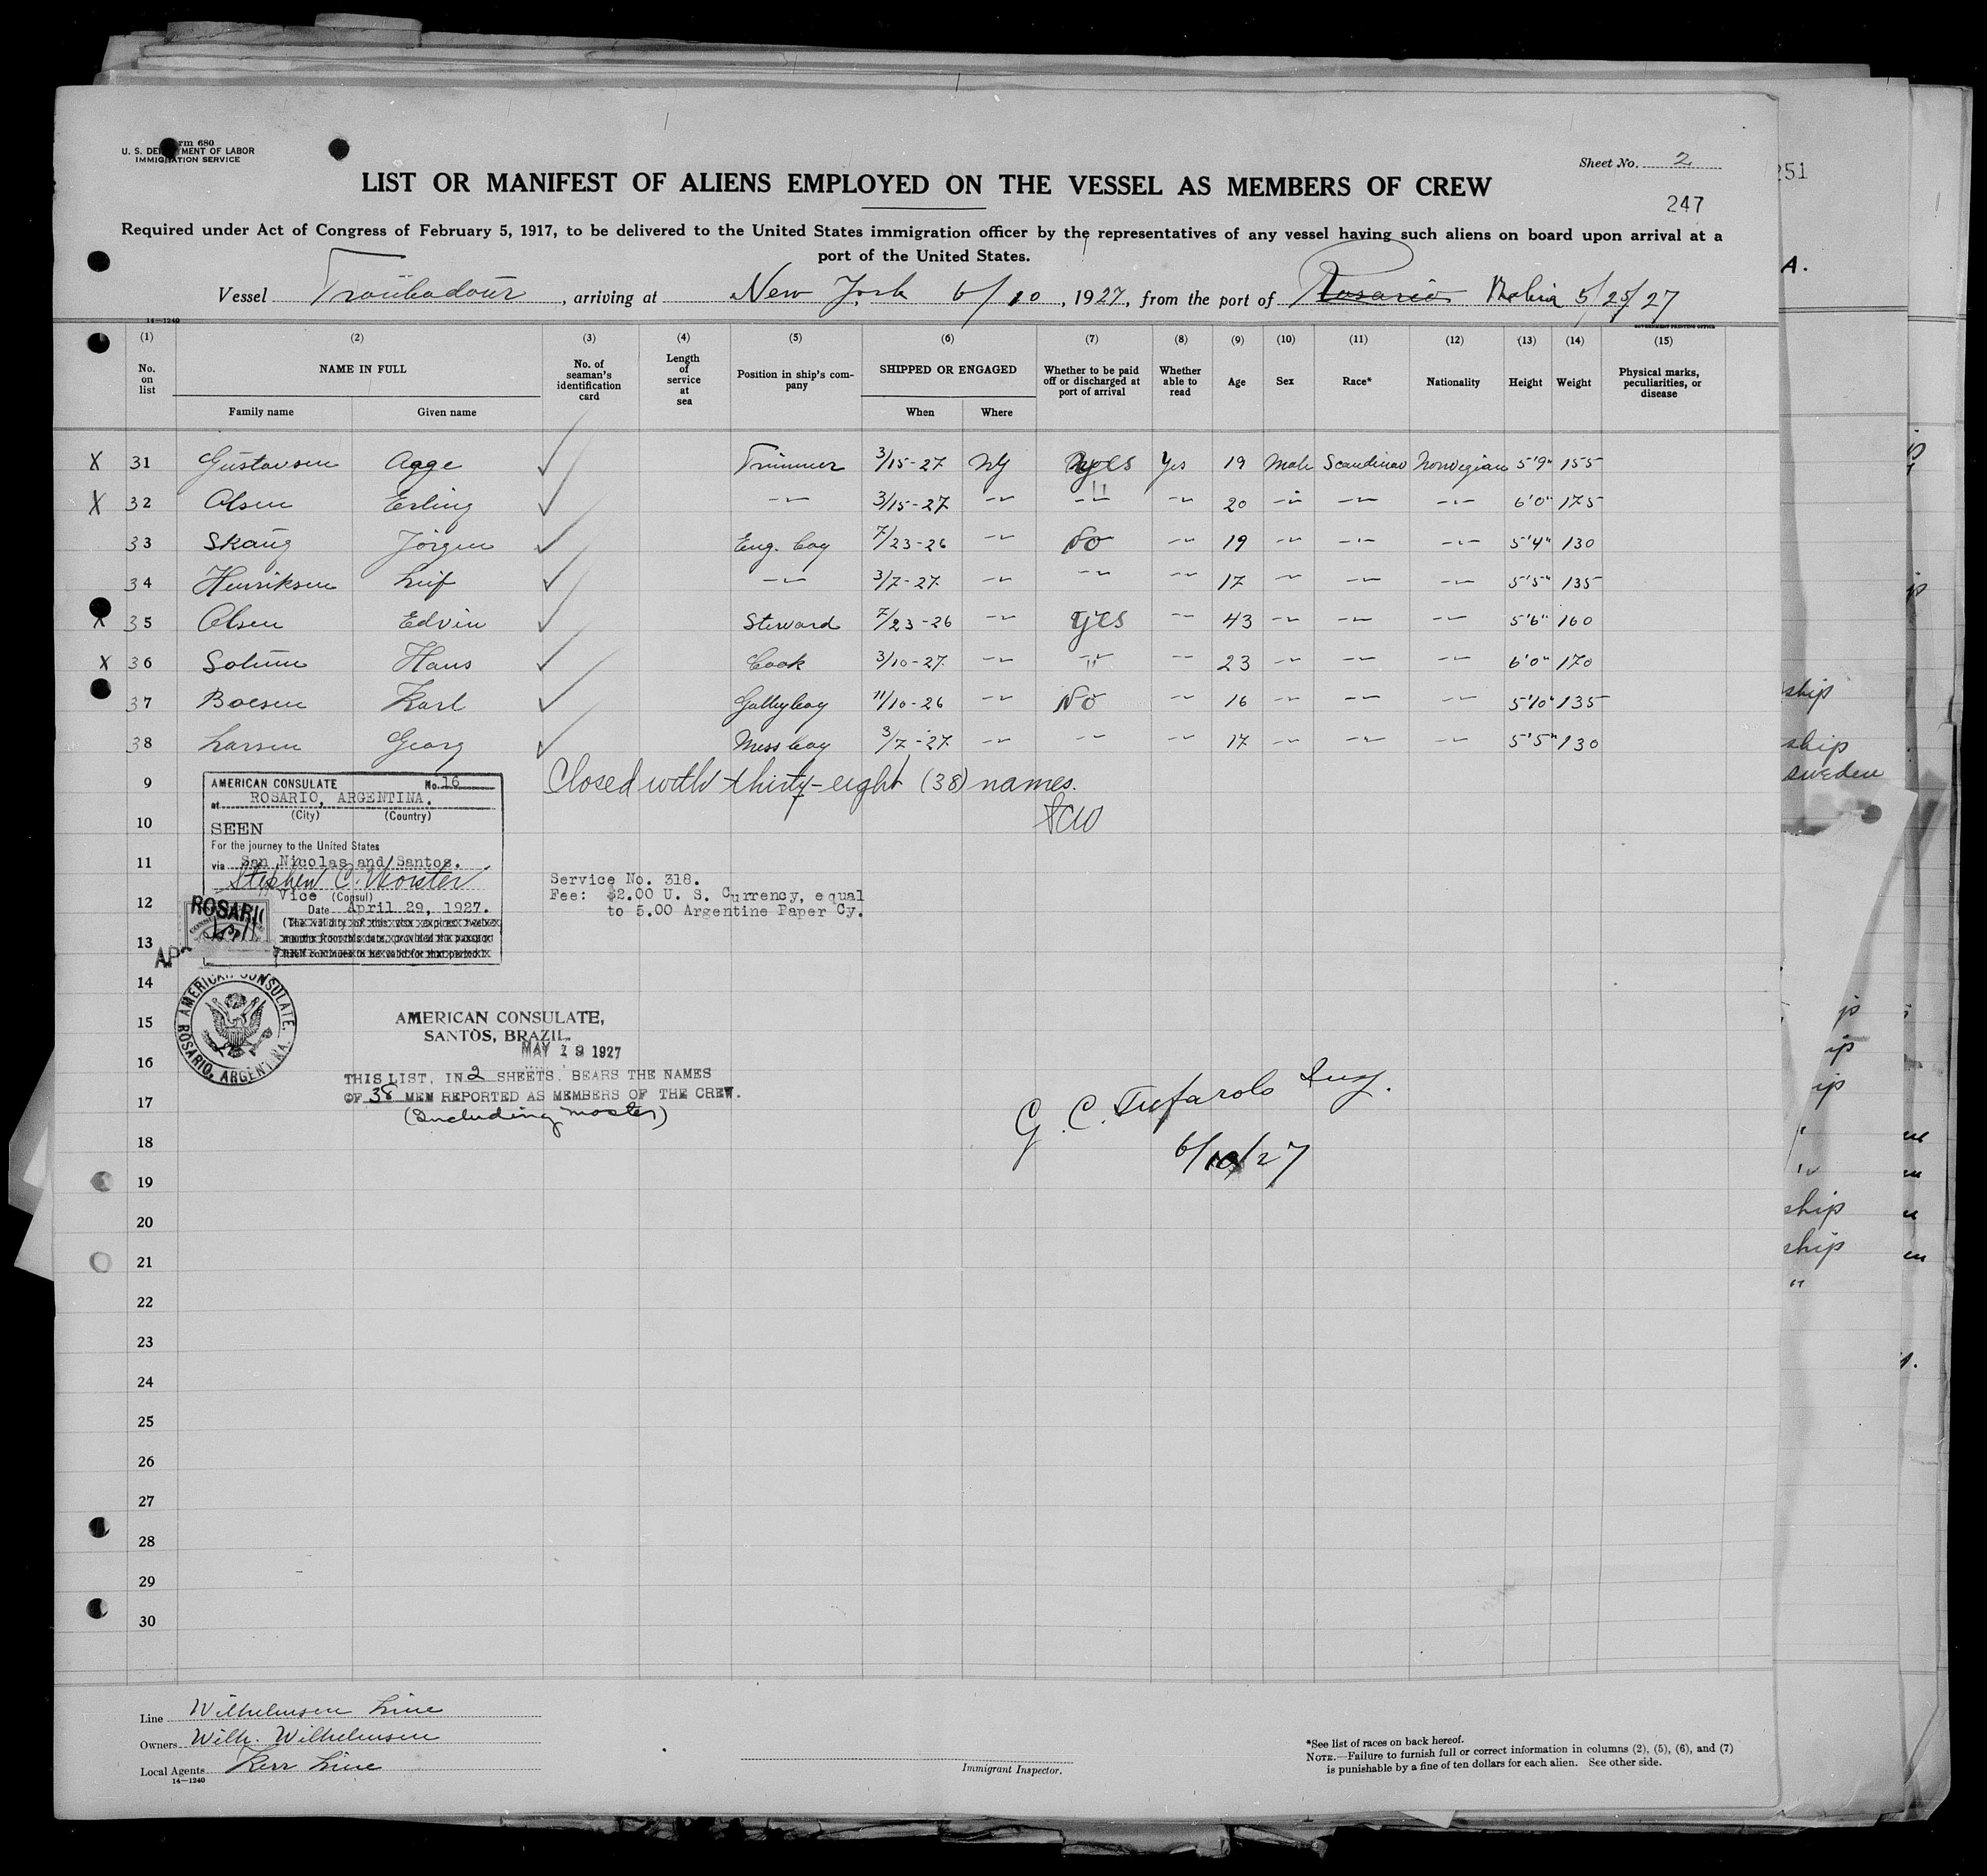 Form 680
U. S. DEPARTMENT OF LABOR
IMMIGRATION SERVICE
Sheet No. 2
LIST OR MANIFEST OF ALIENS EMPLOYED ON THE VESSEL AS MEMBERS OF CREW
247
251
Required under Act of Congress of February 5, 1917, to be delivered to the United States immigration officer by the representatives of any vessel having such aliens on board upon arrival at a
port of the United States.
A.
Vessel Troubadour, arriving at New York 6/10, 1927, from the port of Rosario Bahia 5/25/27
14—1240
GOVERNMENT PRINTING OFFICE
(1) (2) (3) (4) (5) (6) (7) (8) (9) (10) (11) (12) (13) (14) (15)
No. on list NAME IN FULL Family name Given name No. of seaman's identification card Length of service at sea Position in ship's company SHIPPED OR ENGAGED When Where Whether to be paid off or discharged at port of arrival Whether able to read Age Sex Race* Nationality Height Weight Physical marks, peculiarities, or disease
X 31 Gustavsen Aage ✓ Trimmer 3/15-27 NY yes Yes 19 Male Scandinav Norwegian 5'9" 155
X 32 Olsen Erling ✓ -〃- 3/15-27 -〃- " -〃- 20 -〃- -〃- -〃- 6'0" 175
33 Skaug Jörgen ✓ Eng. boy 7/23-26 -〃- No -〃- 19 -〃- -〃- -〃- 5'4" 130
34 Henriksen Leif ✓ -〃- 3/7-27 -〃- -〃- -〃- 17 -〃- -〃- -〃- 5'5" 135
X 35 Olsen Edvin ✓ Steward 7/23-26 -〃- yes -〃- 43 -〃- -〃- -〃- 5'6" 160
X 36 Solum Hans ✓ Cook 3/10-27 -〃- " -〃- 23 -〃- -〃- -〃- 6'0" 170
37 Boesen Karl ✓ Galleyboy 11/10-26 -〃- No -〃- 16 -〃- -〃- -〃- 5'10" 135
38 Larsen Georg ✓ Mess boy 3/7-27 -〃- -〃- -〃- 17 -〃- -〃- -〃- 5'5" 130
9 Closed with thirty-eight (38) names.
SCW
AMERICAN CONSULATE No. 16
at ROSARIO, ARGENTINA.
(City) (Country)
10
SEEN
For the journey to the United States
11
via San Nicolas and Santos.
Stephen C. Worster
Vice (Consul)
12
Date April 29, 1927.
(The validity of this visa expires twelve
months from this date, provided the passport
continues to be valid for that period.)
ROSARIO
Service No. 318.
Fee: $2.00 U. S. Currency, equal
to 5.00 Argentine Paper Cy.
13
14
AMERICAN CONSULATE.
ROSARIO, ARGENTINA.
15
AMERICAN CONSULATE,
SANTOS, BRAZIL.
MAY 19 1927
16
THIS LIST, IN 2 SHEETS, BEARS THE NAMES
OF 38 MEN REPORTED AS MEMBERS OF THE CREW.
(Including master)
17
G. C. Tufarolo Insp.
6/10/27
18
19
20
21
22
23
24
25
26
27
28
29
30
ship
ship
Sweden
ship
ship
Line Wilhelmsen Line
Owners Wilh. Wilhelmsen
Local Agents Kerr Line
14—1240
Immigrant Inspector.
*See list of races on back hereof.
NOTE.—Failure to furnish full or correct information in columns (2), (5), (6), and (7)
is punishable by a fine of ten dollars for each alien. See other side.